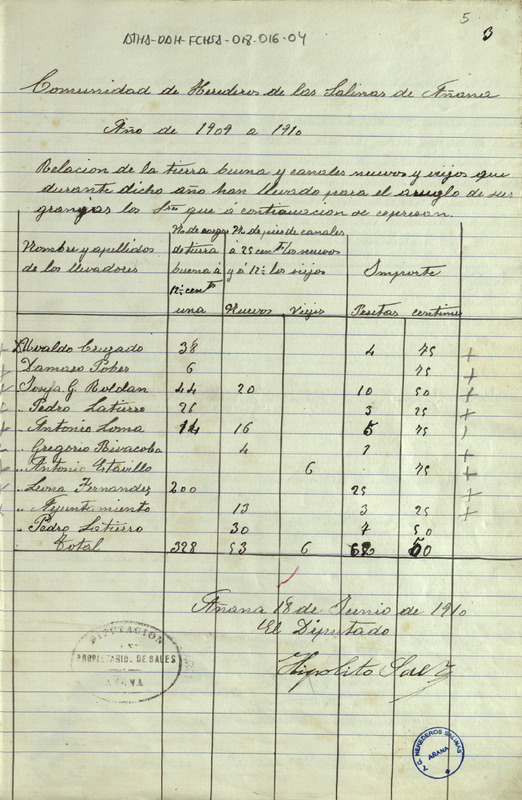 5
3
ATHA-DAH-FCHSA-018-016-04
Comunidad de Herederos de las Salinas de Añana
Año de 1909 a 1910
Relacion de la tierra buena y canales nuevos y viejos que
durante dicho año han llevado para el arreglo de sus
granjas los Sres que á continuacion se expresan.
Nombre y apellidos de los llevadores | No de cargas de tierra buena á 12½ cents una | No de pies de canales á 25 cents los nuevos y á 12½ los viejos | Importe
Nuevos | Viejos | Pesetas | centimos
Uvaldo Cruzado 38 4 75
Damaso Pobes 6 75
Tonja G. Roldan 44 20 10 50
" Pedro Laturre 26 3 25
" Antonio Loma 14 16 5 75
" Gregorio Rivacoba 4 1
" Antonio Estavillo 6 75
" Leona Fernandez 200 25
" Ayuntamiento 13 3 25
" Pedro Laturro 30 7 50
Total 328 83 6 62 50
Añana 18 de Junio de 1910
El Diputado
Hipolito Saez
DIPUTACION
DE
PROPIETARIOS DE SALES
AÑANA
T. G. HEREDEROS SALINAS
AÑANA